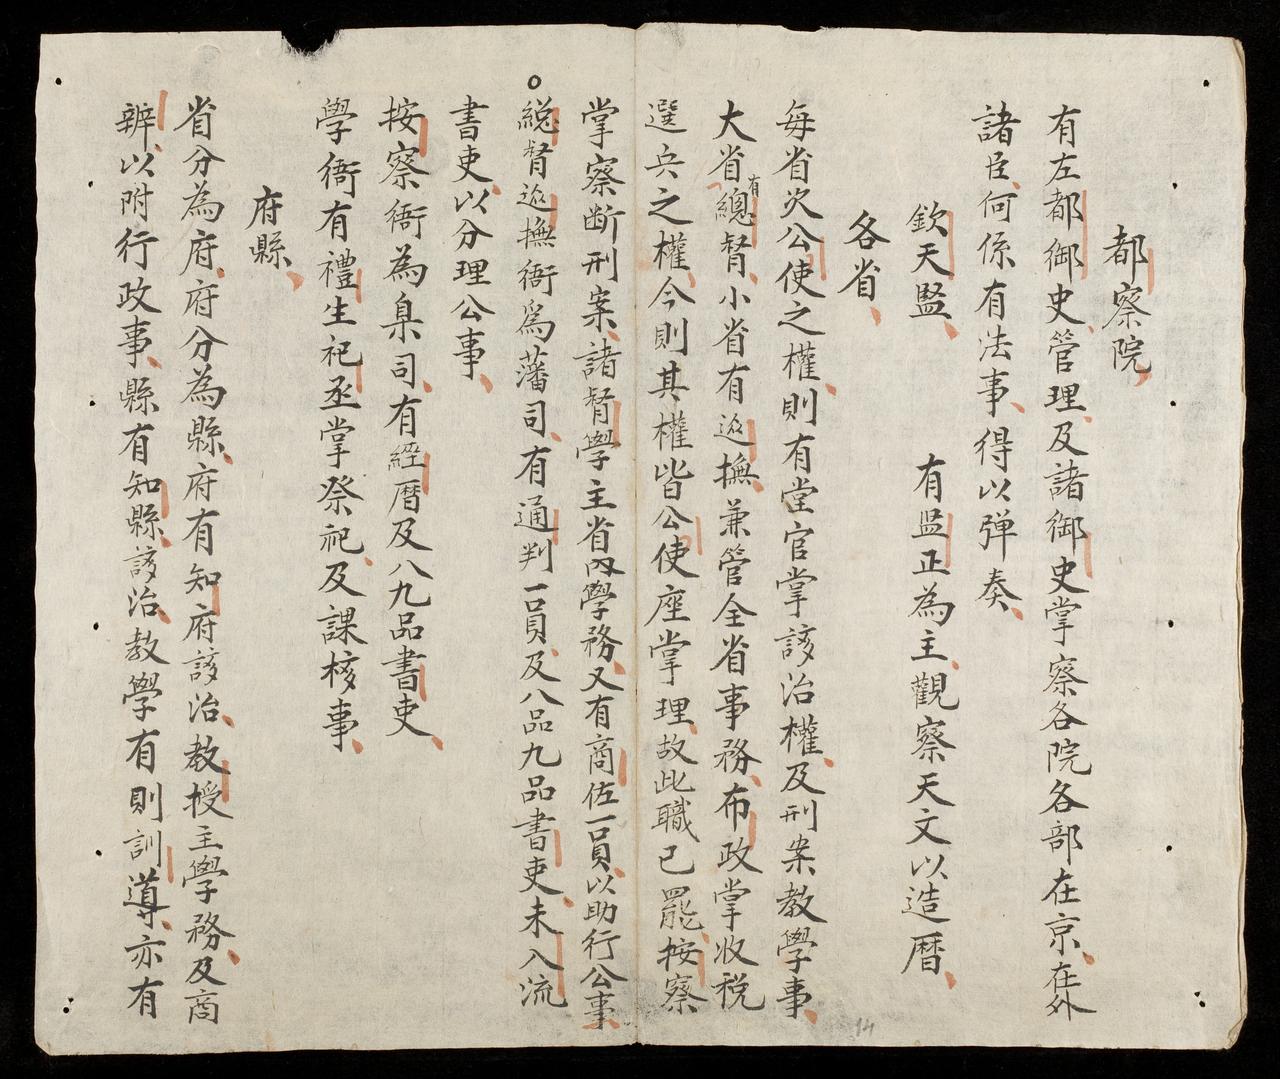 都察院
有左都御史管理及諸御史掌察各院各部在京在外
諸臣何係有法事得以弹奏
欽天監 有监正為主觀察天文以造曆
各省
每省次公使之權則有堂官掌該治權及刑案教學事
大省有總督小省有巡撫兼管全省事務布政掌收稅
選兵之權今則其權皆公使座掌理故此職已罷按察
掌察断刑案諸督學主省內學務又有商佐一員以助行公事
總督巡撫衙爲藩司有通判一員及八品九品書吏未入流
書吏以分理公事
按察衙為臬司有經曆及八九品書吏
學衙有禮生祀丞掌祭祀及課核事
府縣
省分為府府分為縣府有知府該治教授主學務及商
辨以附行政事縣有知縣該治教學有則訓導亦有
14